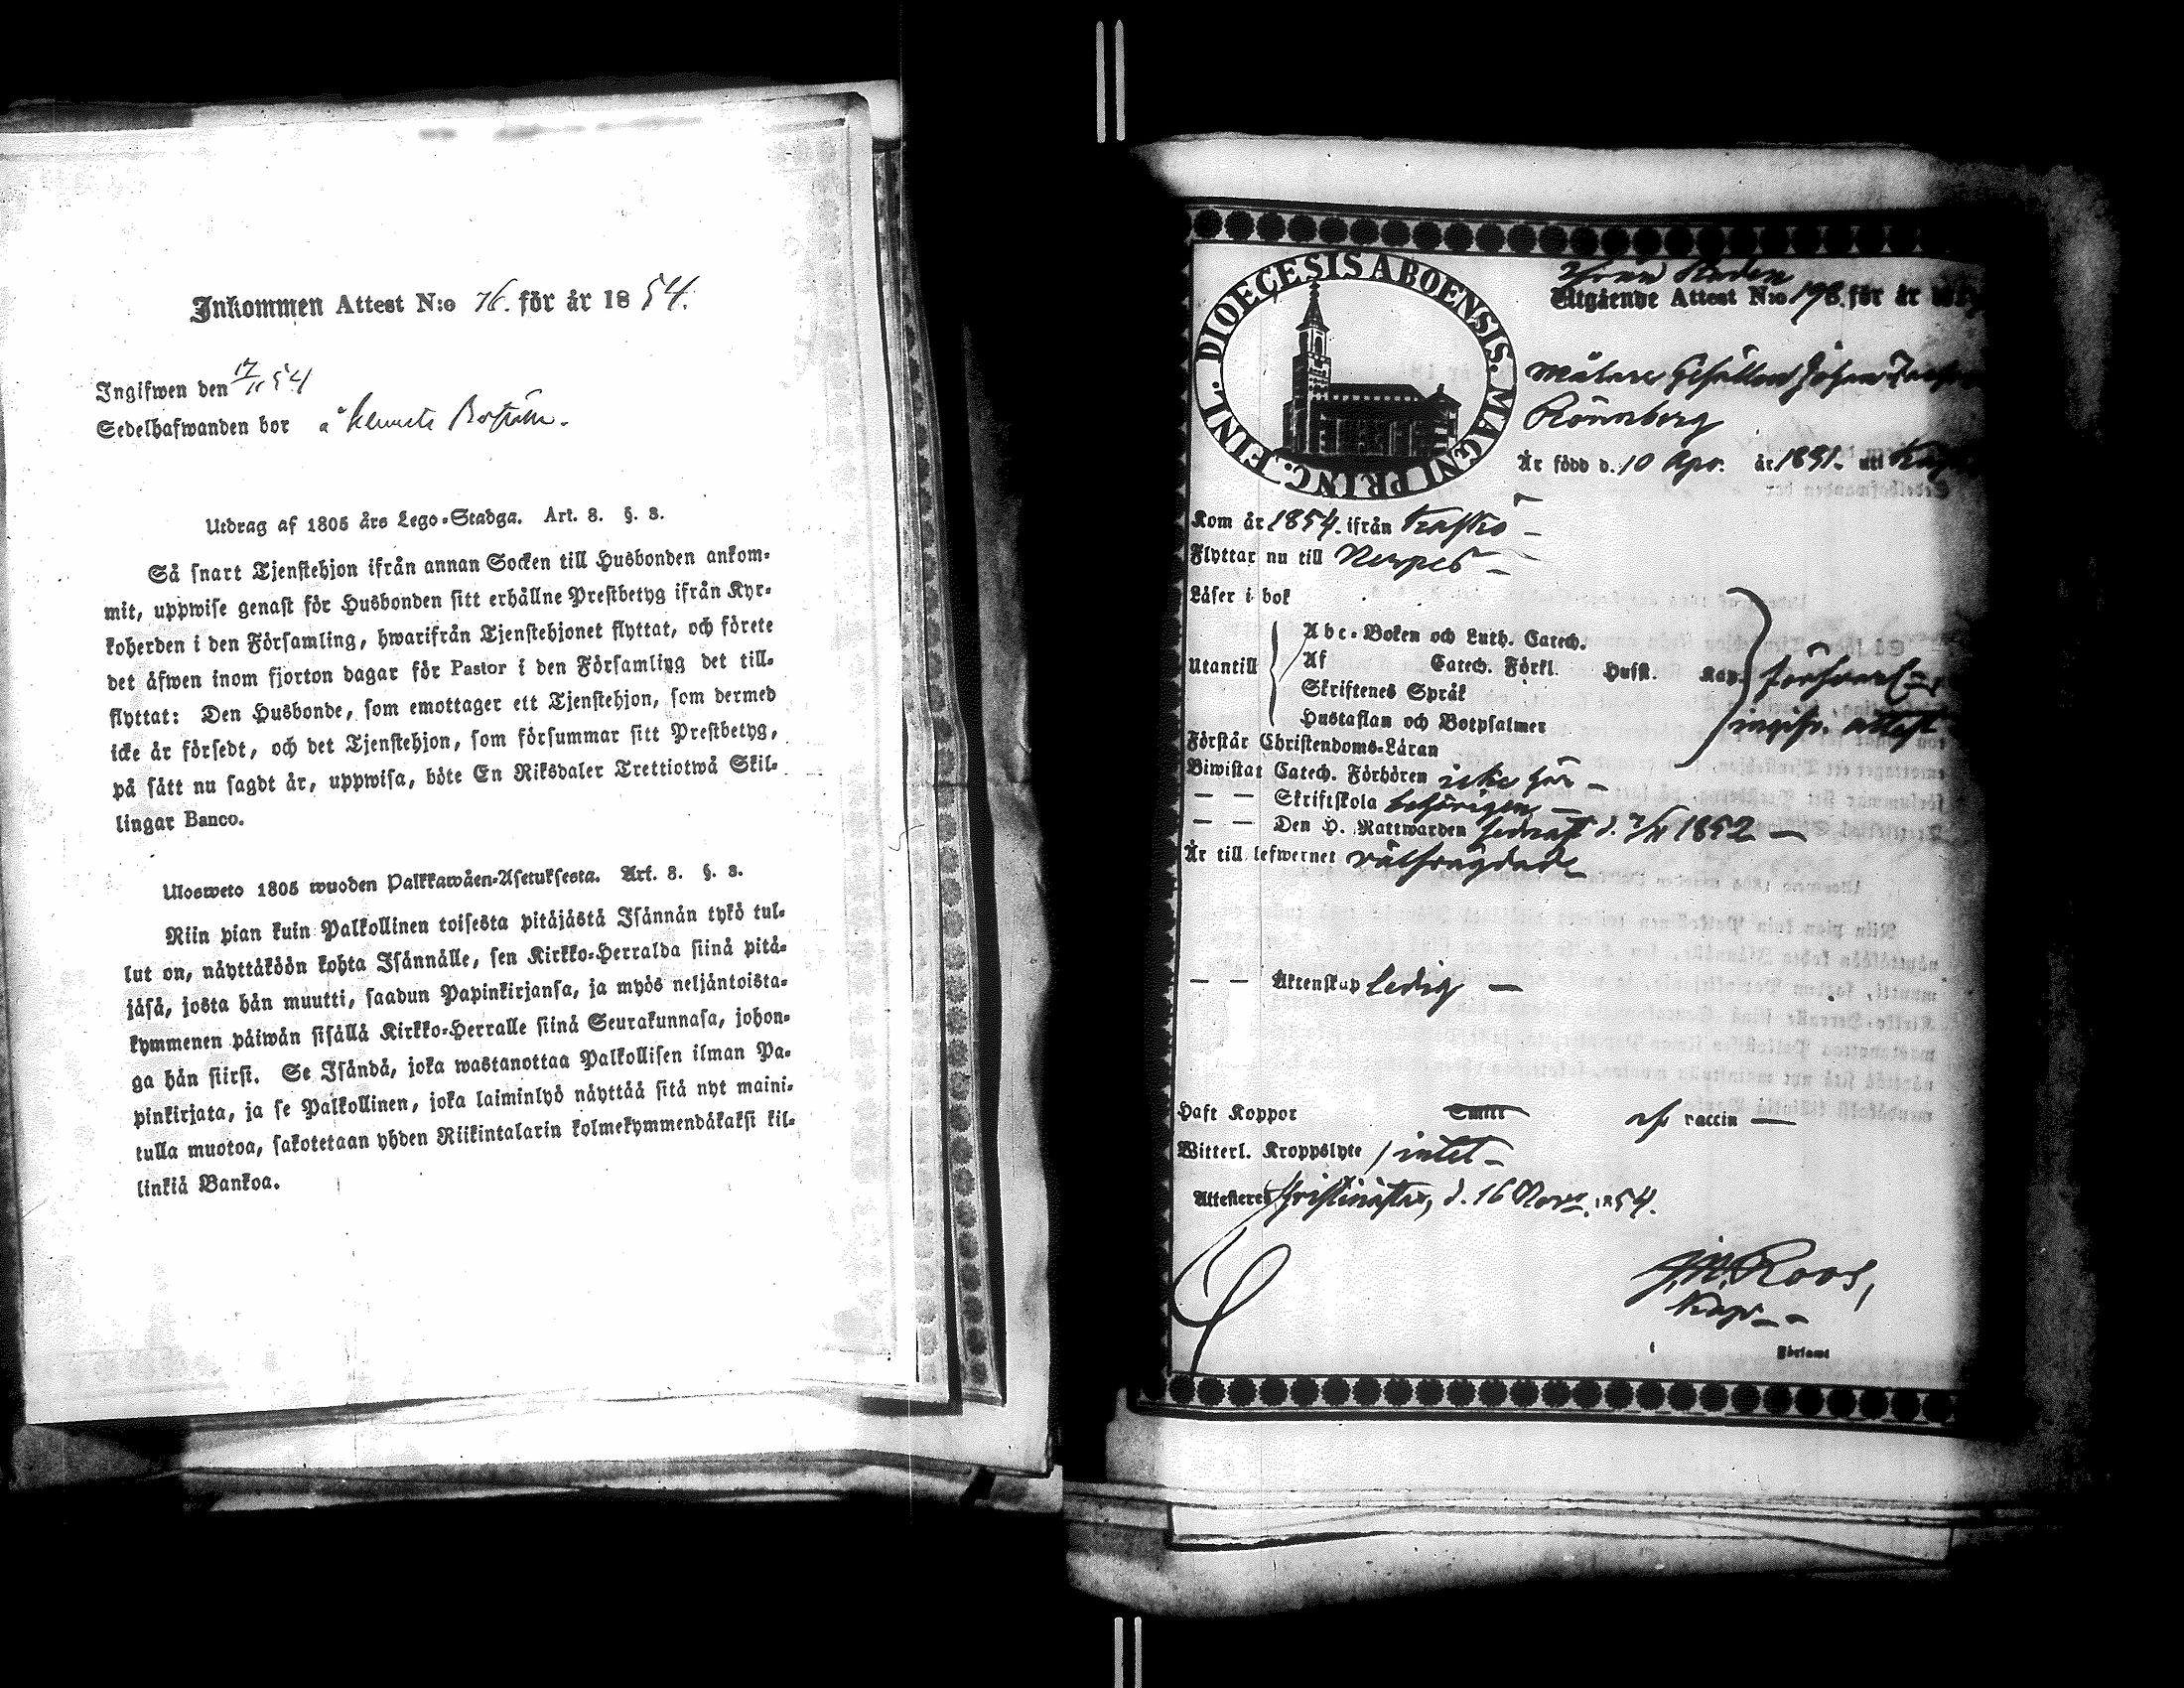 Inkommen Attest N:o 76. för år 1854.
Ingifwen den 17/11 54
Sedelhafwanden bor å
Utdrag af 1805 års Lego-Stadga. Art. 8. §. 3.
Så snart Tjenstehjon ifrån annan Socken till Husbonden ankom-
mit, uppwise genast för Husbonden sitt erhållne Prestbetyg ifrån Kyr-
koherden i den Församling, hwarifrån Tjenstehjonet flyttat, och förete
det äfwen inom fjorton dagar för Pastor i den Församling det till-
flyttat: Den Husbonde, som emottager ett Tjenstehjon, som dermed
icke är försedt, och det Tjenstehjon, som försummar sitt Prestbetyg,
på sätt nu sagdt är, uppwisa, böte En Riksdaler Trettiotwå Skil-
lingar Banco.
Ulosweto 1805 wuoden Palkkawäen-Asetuksesta. Art. 8. §. 3.
Niin pian kuin Palkollinen toisesta pitäjästä Isännän tykö tul-
lut on, näyttäköön kohta Isännälle, sen Kirkko-Herralda siinä pitä-
jäsä, josta hän muutti, saadun Papinkirjansa, ja myös neljäntoista-
kymmenen päiwän sisällä Kirkko-Herralle siinä Seurakunnasa, johon-
ga hän siirsi. Se Isändä, joka wastanottaa Palkollisen ilman Pa-
pinkirjata, ja se Palkollinen, joka laiminlyö näyttää sitä nyt maini-
tulla muotoa, sakotetaan yhden Riikintalarin kolmekymmendäkaksi kil-
linkiä Bankoa.
DIOECESIS ABOENSIS. MAGNI PRINC. FINL.
Ifrån Staden
Utgående Attest N:o 198. för år
Målare Gesällen Johan
Rönnberg
Är född d. 10 Apr. år 1831. uti
Kom år 1854. ifrån Kaskö
Flyttar nu till Nerpes
Läser i bok
Utantill
Abc-Boken och Luth. Catech.
Af Catech. Förkl. Hufst. Kap.
Skriftenes Språk
Hustaflan och Botpsalmer
Förstår Christendoms-Läran
ingifv. attest
Biwistat Catech. Förhören icke här
— — Skriftskola behörigen
— — Den H. Nattwarden sednast d. 7/11 1852
Är till lefwernet välfräjdad
— — Äktenskap ledig
Haft Koppor Smitt af vaccin
Witterl. Kroppslyte intet
Attesteres Kristinestad, d. 16 Nov. 1854.
J.M. Roos,
Kapl.
Församl